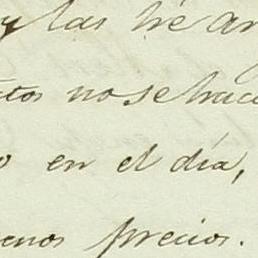 y las hé ar
tos no se hace
o en el día,
enos precios.